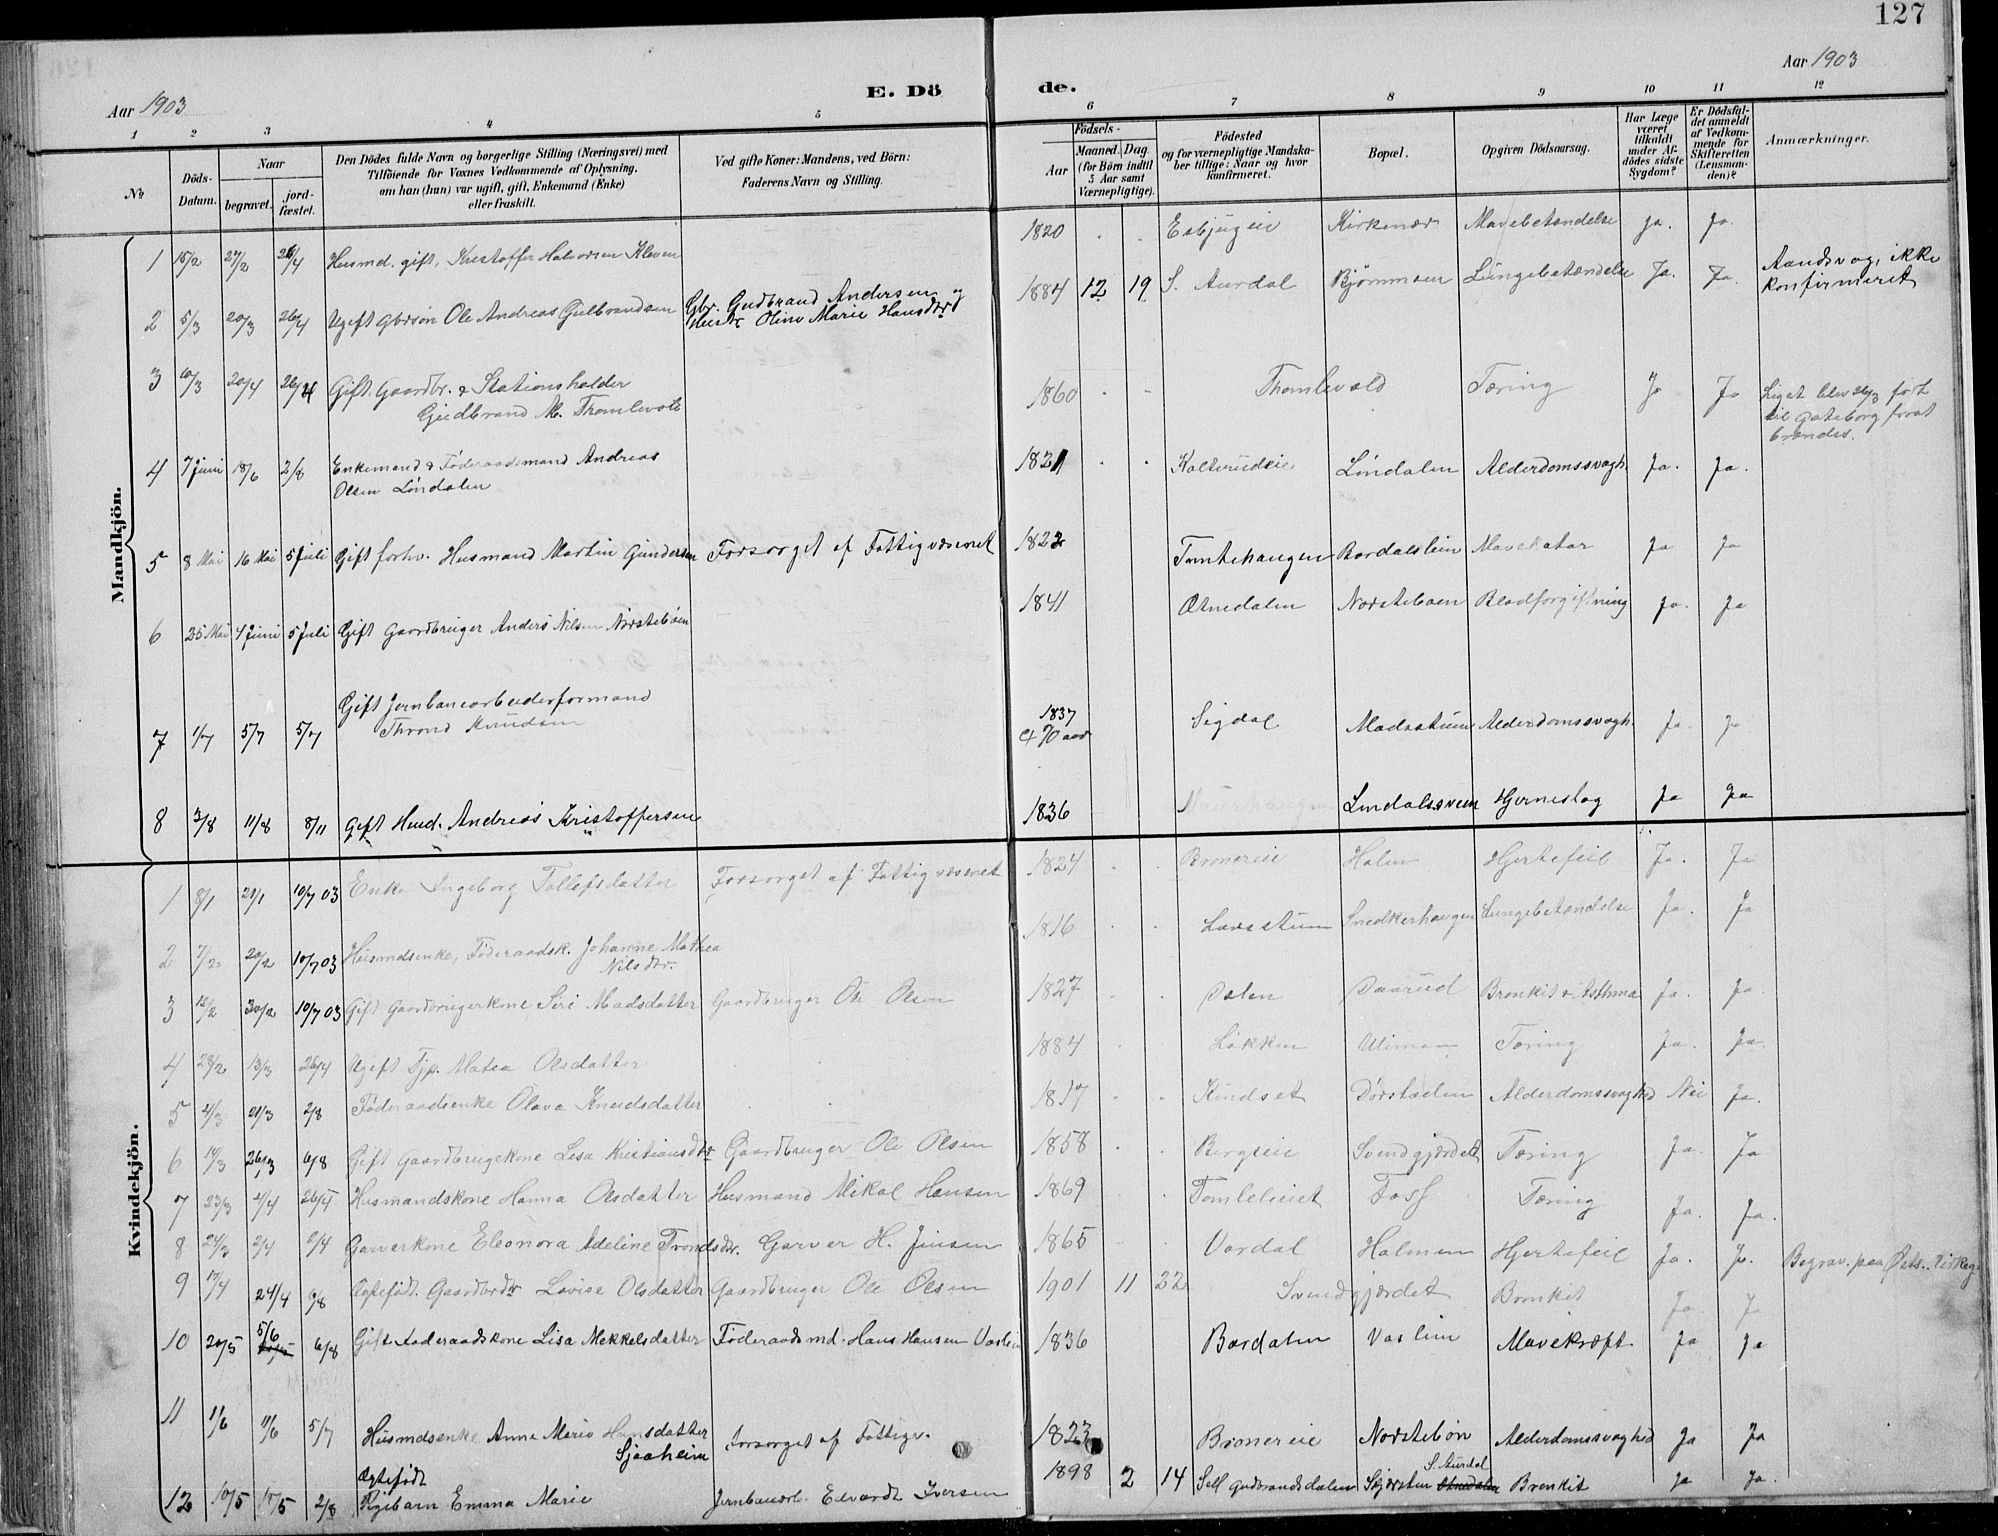 127
Aar 1903
E. Dö
de.
Aar 1903
1 2 3 4 5 6 7 8 9 10 11 12
№
Döds-
Datum.
Naar
begravet.
jord-
fæstet.
Den Dödes fulde Navn og borgerlige Stilling (Næringsvei) med
Tilföiende for Voxnes Vedkommende af Oplysning,
om han (hun) var ugift, gift, Enkemand (Enke)
eller fraskilt.
Ved gifte Koner: Mandens, ved Börn:
Faderens Navn og Stilling.
Födsels-
Aar
Maaned. Dag.
(for Börn indtil
5 Aar samt
Værnepligtige).
Födested
og for værnepligtige Mandska-
ber tillige: Naar og hvor
konfirmeret.
Bopæl.
Opgiven Dödsaarsag.
Har Læge
været
tilkaldt
under Af-
dödes sidste
Sygdom?
Er Dödsfal-
det anmeldt
af Vedkom-
mende for
Skifteretten
(Lensman-
den)?
Anmærkninger.
Mandkjön.
1 15/2 27/2 26/4 Husmd. gift, Kristoffer Halvorsen Kleven 1820 Kirkenær Mavebetændelse Ja. Ja.
2 5/3 20/3 26/4 Ugift Gbrsøn Ole Andreas Gulbrandsen Gbr. Gudbrand Andersen og
Hustr Oline Marie Hansdtr 1884 12 19 S. Aurdal Bjørnmoen Lungebetændelse Ja. Ja. Aandsvag, ikke
konfirmeret
3 10/3 20/4 26/4 Gift Gaardbr. & Stationsholder
Gudbrand M. Thomlevold 1860 Thomlevold Tæring Ja Ja Liget blev 26/3 ført
til Gøteborg forat
brændes.
4 7 Juni 18/6 2/8 Enkemand & Føderaadsmand Andreas
Olsen Lindalen 1821 Kolterudeie Lindalen Alderdomssvagh. Ja. Ja.
5 8 Mai 16 Mai 5 Juli Gift forhv. Husmand Martin Gundersen Forsørget af Fattigvæsenet 1822 Tomtehaugen Bardalslien Mavekatar Ja Ja
6 25 Mai 4 Juni 5 Juli Gift Gaardbruger Anders Nilsen Nørstebøen 1841 Etnedalen Nørstebøen Blodforgiftning Ja. Ja
7 1/7 5/7 5/7 Gift Jernbanearbeiderformand
Thrond Knudsen 1837
ct 70 aar Sigdal Madsstuen Alderdomssvagh. Ja. Ja
8 3/8 11/8 8/11 Gift Husd. Andreas Kristoffersen 1836 Lindalssveen Hjerneslag Ja Ja
Kvindekjön.
1 8/1 21/1 10/7 03 Enke Ingeborg Tollefsdatter Forsørget af Fattigvæsenet 1824 Bronereie Holen Hjertefeil Ja. Ja
2 7/2 20/2 10/7 03 Husmdsenke, Føderaadsk. Johanne Mathea
Nilsdtr. 1816 Larsstuen Snedkerhaugen Lungebetændelse Ja. Ja
3 12/2 20/2 10/7 03 Gift Gaardbrugerkone Siri Madsdatter Gaardbruger Ole Olsen 1827 Dalen Paarud Bronkit & Asthma Ja. Ja.
4 28/2 13/3 26/4 Ugift Tjp. Matea Olsdatter 1884 Løkken Ulimoen Tæring Ja. Ja.
5 4/3 21/3 2/8 Føderaadsenke Olava Knudsdatter 1817 Kindset Dørstaden Alderdomssvaghed Nei Ja.
6 14/3 26/3 6/8 Gift Gaardbrugekone Lisa Kristiansdtr Gaardbruger Ole Olsen 1858 Bergseie Svendgjærdet Tæring Ja. Ja
7 23/3 2/4 26/5 Husmandskone Hanna Olsdatter Husmand Mikal Hansen 1869 Tomleleiet Foss Tæring Ja. Ja.
8 24/3 2/4 2/4 Garverkone Eleonora Adeline Trondsdtr. Garver H. Jensen 1865 Vardal Holmen Hjertefeil Ja. Ja. Begrav. paa
9 17/4 24/4 9/8 Ægtefødt. Gaardbrdtr Lovise Olsdatter Gaardbruger Ole Olsen 1901 11 22 Svendgjærdet Bronkit Ja. Ja
10 20/5 5/6 6/8 Gift Føderaadskone Lisa Mekkelsdatter Føderaadsmd. Hans Hansen Vaslien 1836 Bardalen Vaslien Mavekræft. Ja Ja
11 1/6 11/6 5/7 Husmdsenke Anne Marie Hansdatter
Sjaaheim Forsørget af Fattigv. 1823 Bronereie Nørstebøn Alderdomssvaghed Ja Ja
12 10/5 17/5 2/8 Ægtefødt
Pigebarn Emma Marie Jernbanearb. Edvardt Iversen 1898 2 14 Sell Gudbrandsdalen Skjørsten S. Aurdal Etnedalen Bronkit Ja Ja.